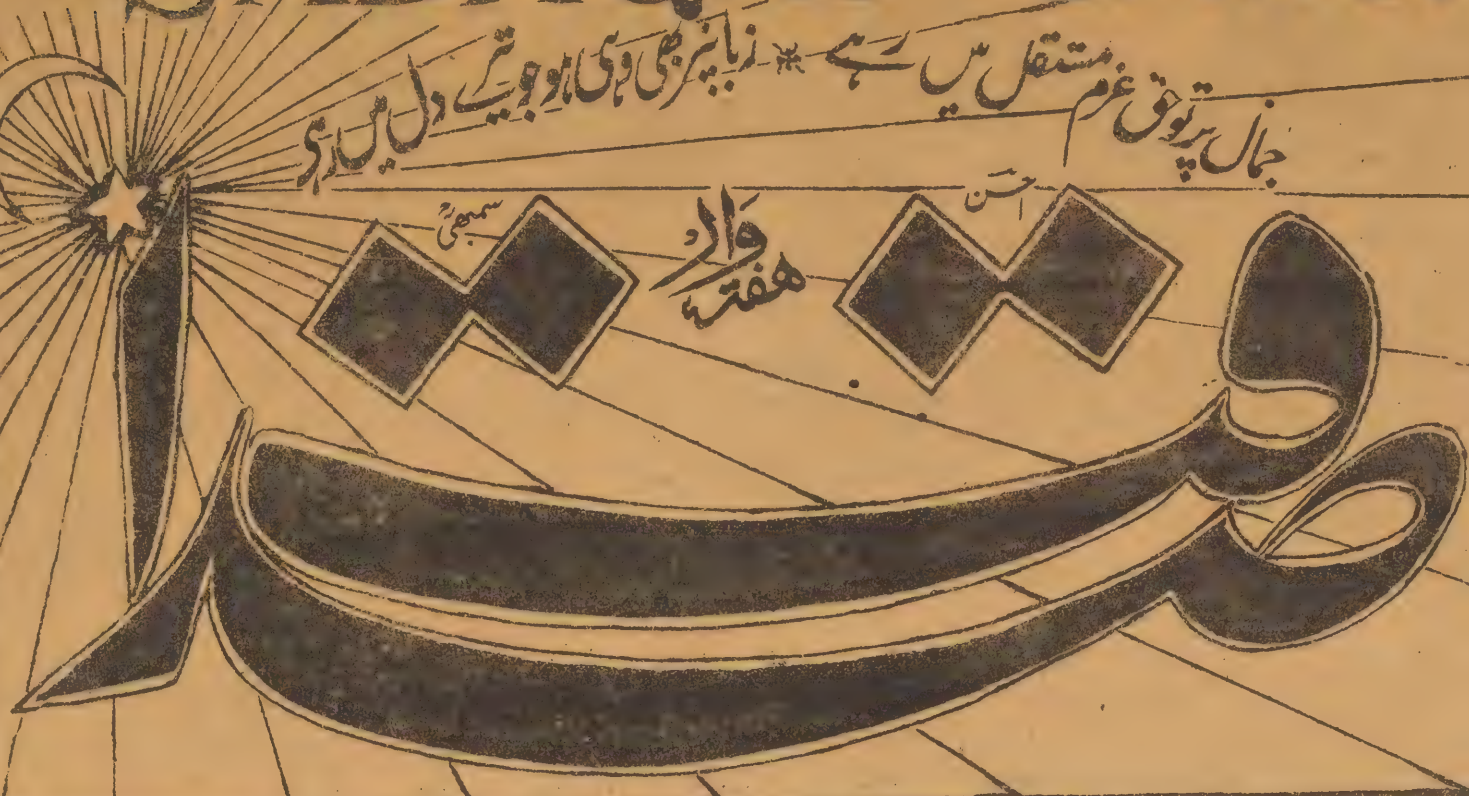 جمال پرتو حق عزم مستقل میں رہے * زبانپر بھی وہی ہو جو تیرے دل میں رہے
احسن
ھفتہ وار
صداقت